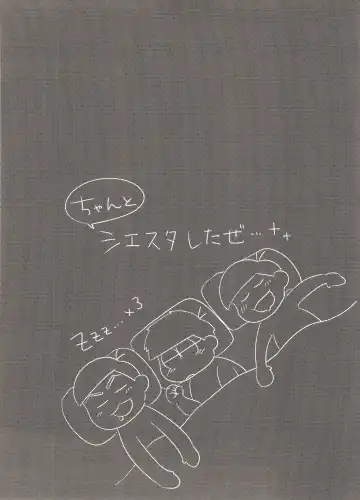 ちゃんと
シエスタしたぜ…++
ZZZ…×3